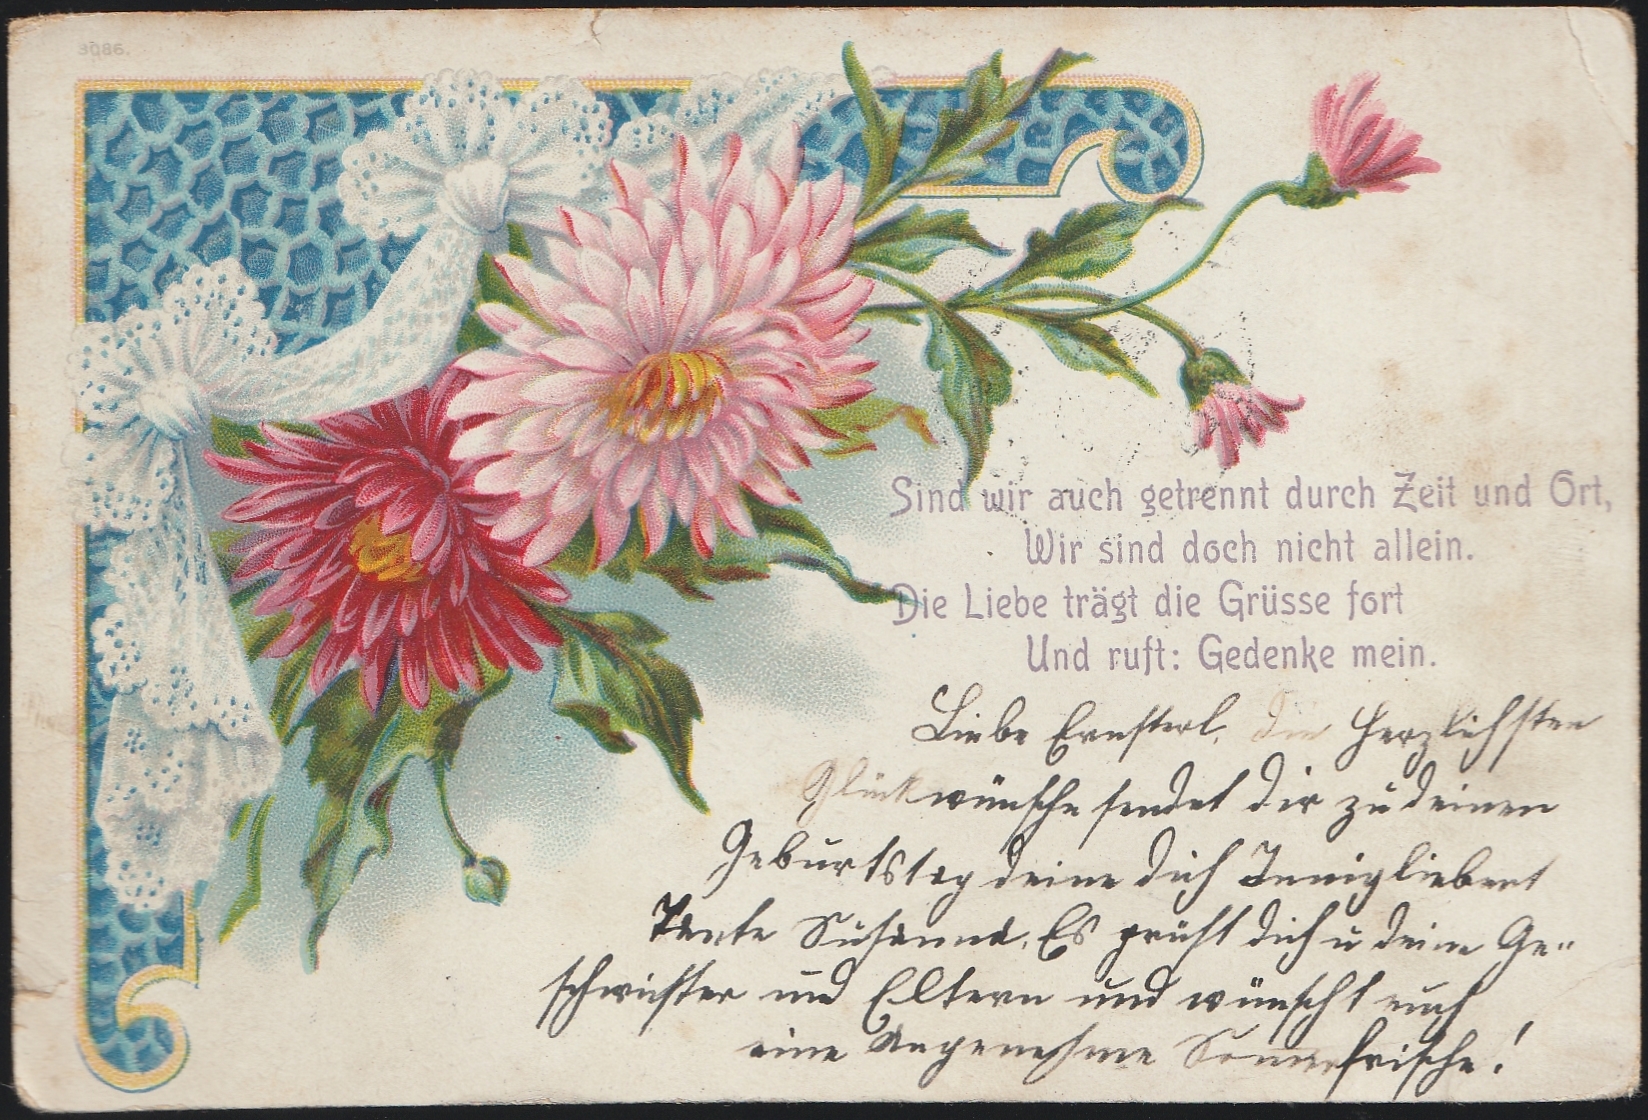 3086.
Sind wir auch getrennt durch Zeit und Ort,
Wir sind doch nicht allein.
Die Liebe trägt die Grüsse fort
Und ruft: Gedenke mein.
Liebe Ernsterl, die Herzlichsten
Glückwünsche sendet dir zu deinen
Geburtstag deine dich Innigliebent
Tante Susanna. Es grüßt dich u deine Ge-
schwister und Eltern und wünscht euch
eine Angenehme Sommerfrische!